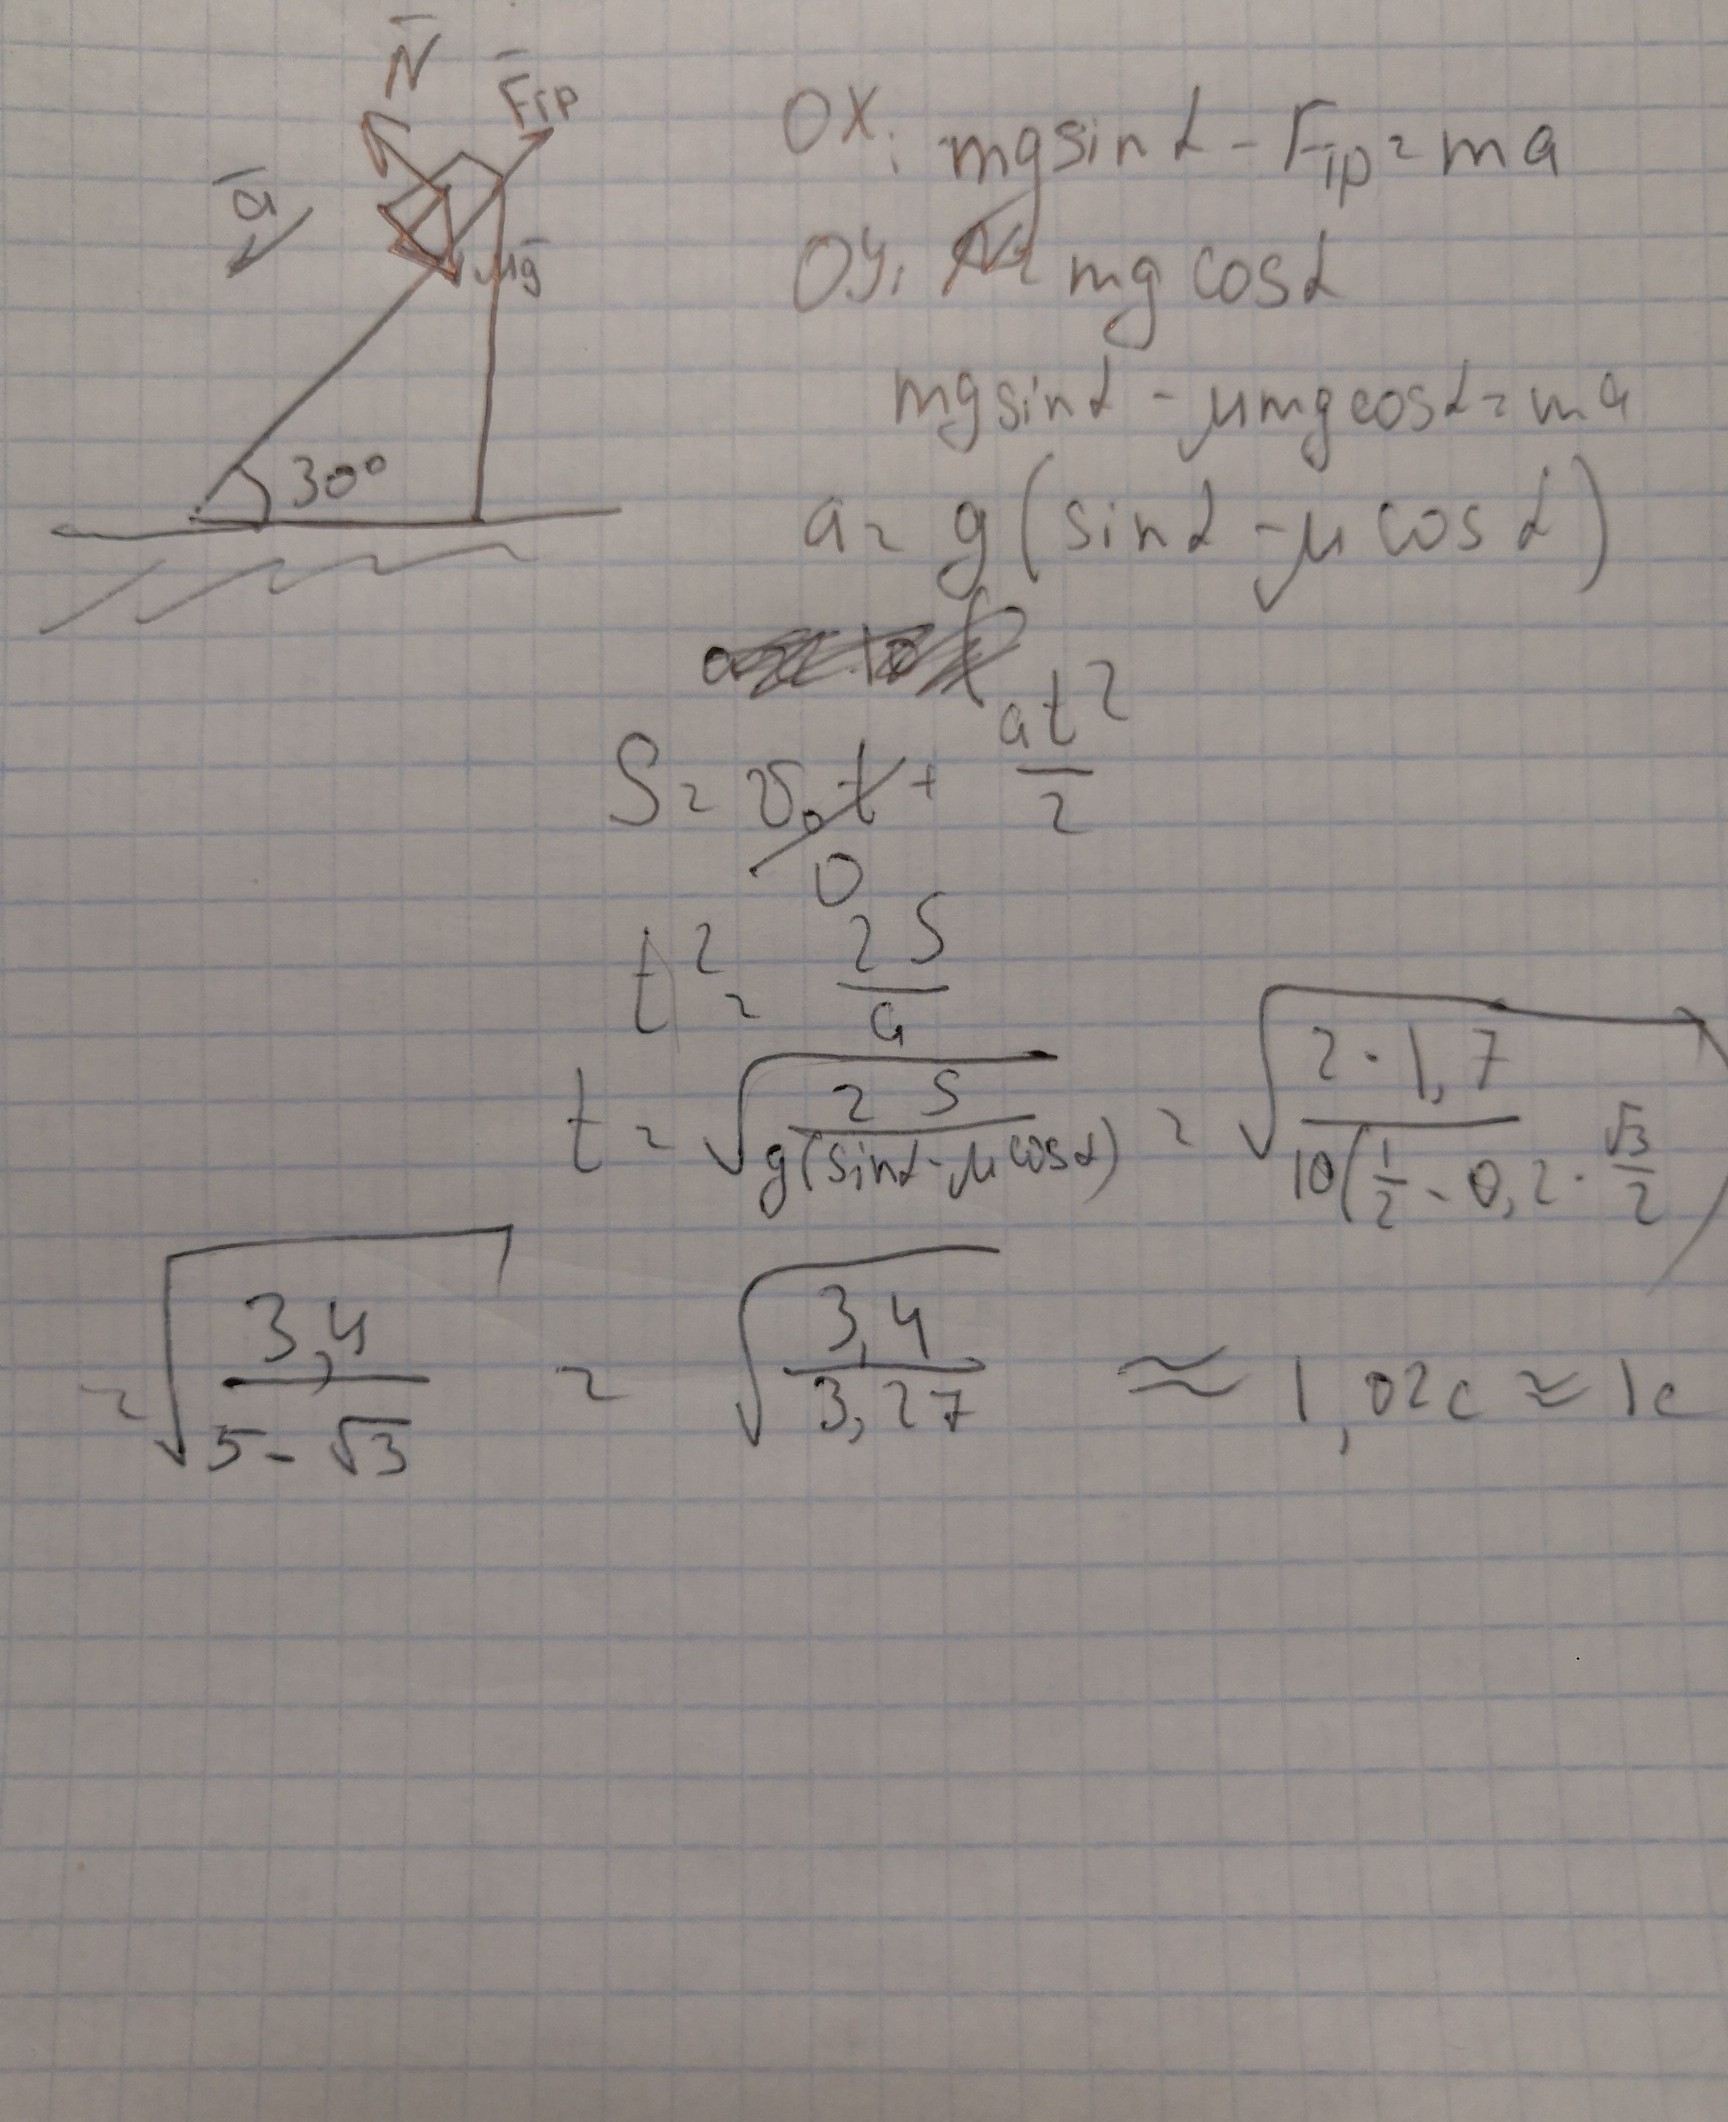 N̄
F̄тр
ā
mḡ
30°
OX: mg sin α - Fтр = ma
OY: N = mg cos α
mg sin α - μmg cos α = ma
a = g (sin α - μ cos α)
S = υ₀t + at²/2
0
t² = 2S/a
t = √(2S/(g(sin α - μ cos α))) = √(2·1,7/(10(1/2 - 0,2·√3/2)))
= √(3,4/(5-√3)) = √(3,4/3,27) ≈ 1,02c ≈ 1c